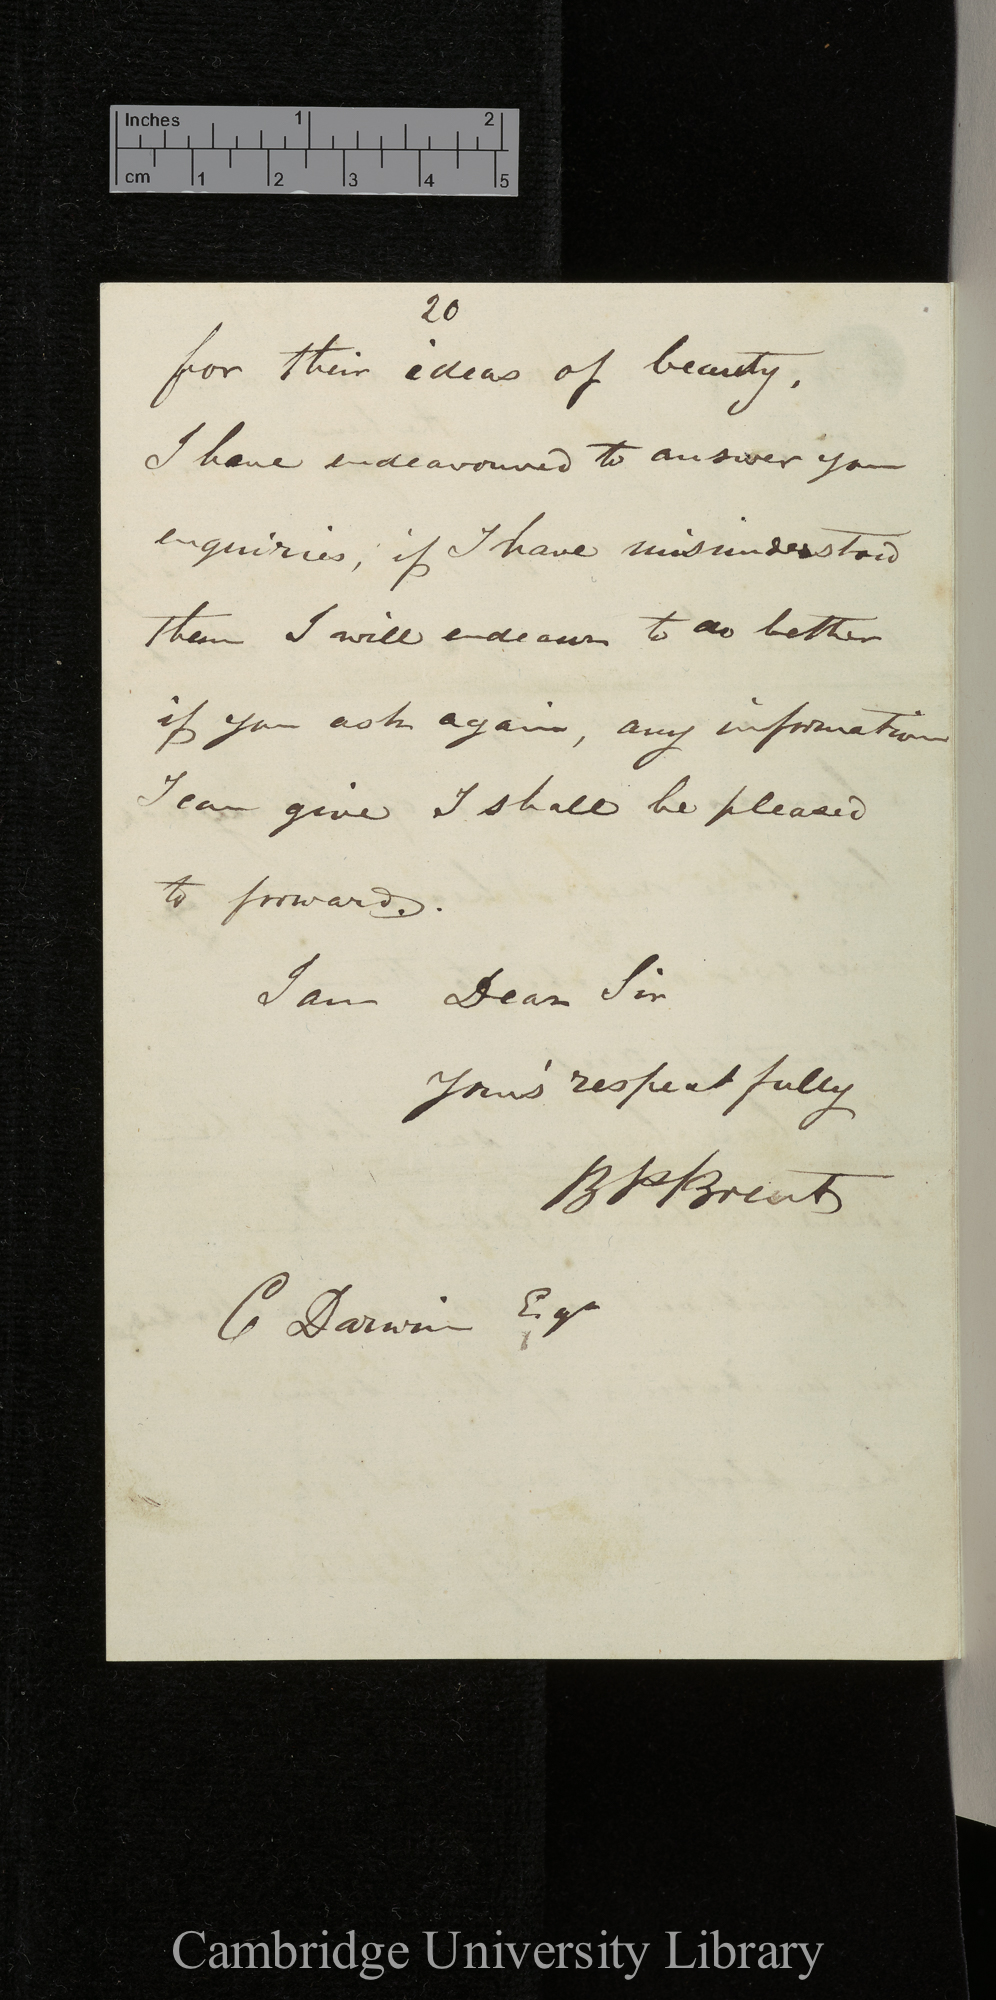 Inches 1 2
cm 1 2 3 4 5
20
for their ideas of beauty,
I have endeavoured to answer your
enquiries, if I have misunderstood
them I will endeavour to do better
if you ask again, any information
I can give I shall be pleased
to forward.
I am Dear Sir
Your's respectfully
B P Brent
C Darwin Esqr
Cambridge University Library